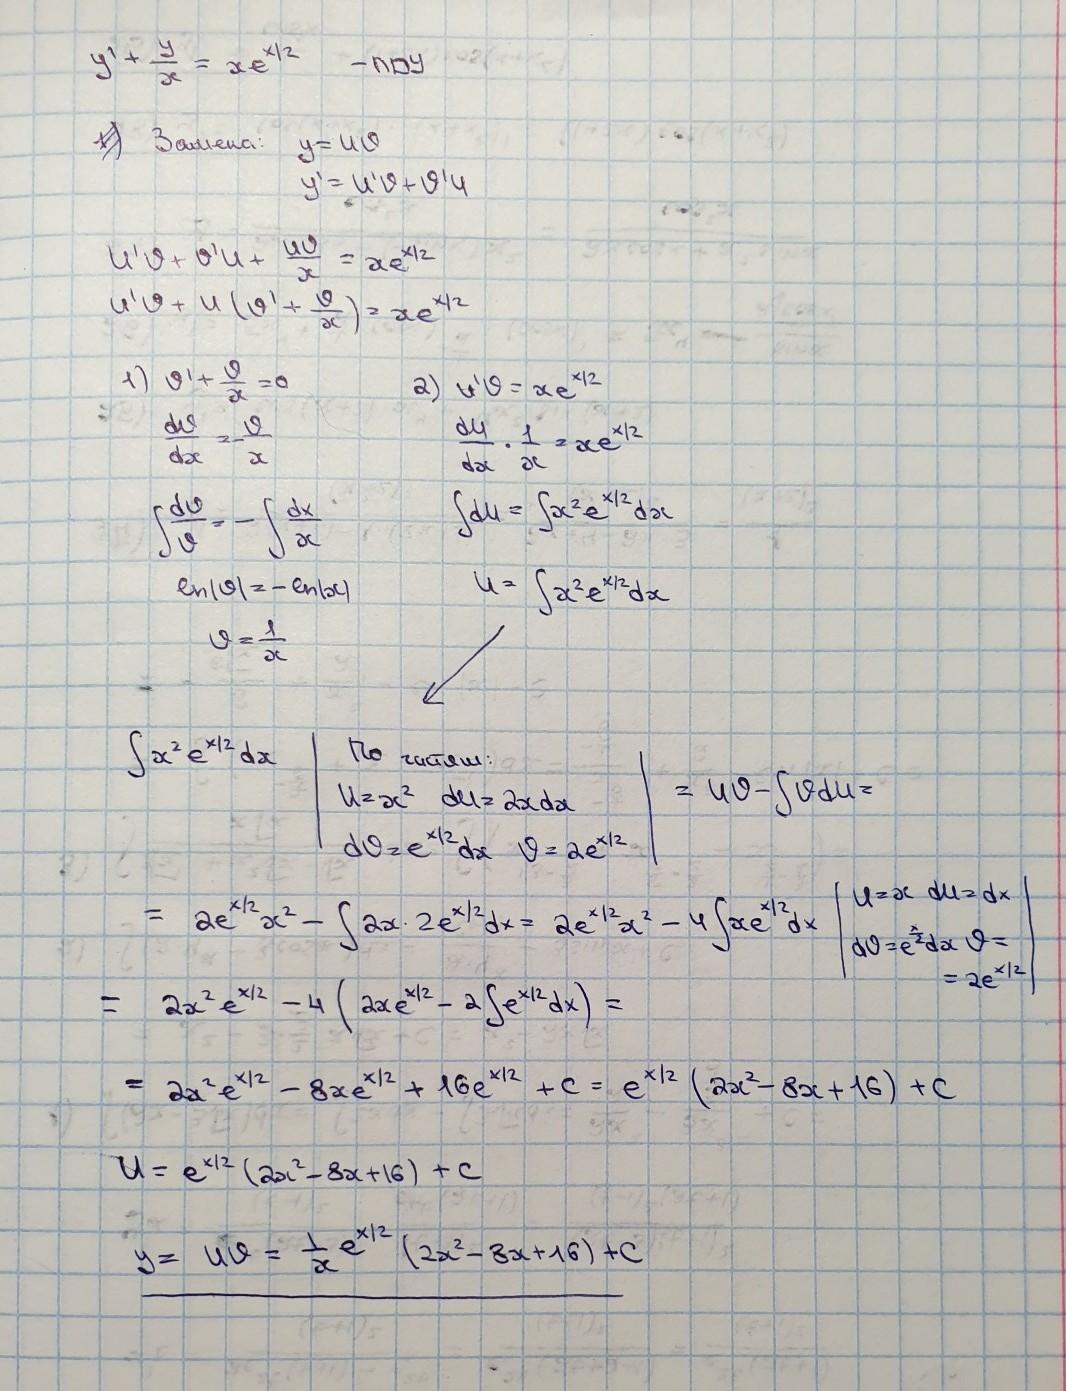 y' + y/x = xe^(x/2) - ЛДУ
Замена: y = uv
y' = u'v + v'u
u'v + v'u + uv/x = xe^(x/2)
u'v + u(v' + v/x) = xe^(x/2)
1) v' + v/x = 0
dv/dx = -v/x
∫dv/v = -∫dx/x
ln|v| = -ln|x|
v = 1/x
2) u'v = xe^(x/2)
du/dx · 1/x = xe^(x/2)
∫du = ∫x²e^(x/2)dx
u = ∫x²e^(x/2)dx
∫x²e^(x/2)dx | По частям: u = x² du = 2xdx dv = e^(x/2)dx v = 2e^(x/2) | = uv - ∫vdu =
= 2e^(x/2)x² - ∫2x · 2e^(x/2)dx = 2e^(x/2)x² - 4∫xe^(x/2)dx | u = x du = dx dv = e^(x/2)dx v = = 2e^(x/2) |
= 2x²e^(x/2) - 4(2xe^(x/2) - 2∫e^(x/2)dx) =
= 2x²e^(x/2) - 8xe^(x/2) + 16e^(x/2) + C = e^(x/2)(2x² - 8x + 16) + C
u = e^(x/2)(2x² - 8x + 16) + C
y = uv = 1/x e^(x/2)(2x² - 8x + 16) + C